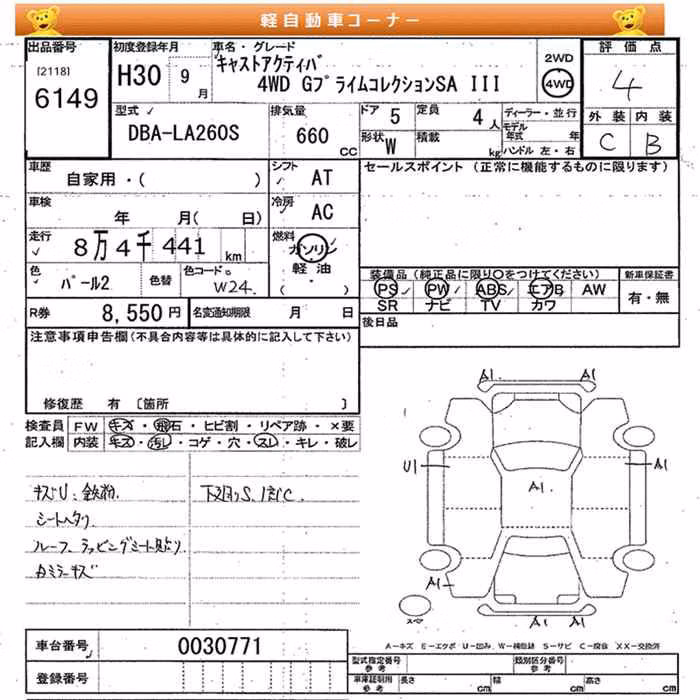 軽自動車コーナー
出品番号
[2118]
6149
初度登録年月
H30 9月
車名・グレード
キャストアクティバ
4WD Gプライムコレクション SA III
2WD
4WD
評価点
4
外装 内装
C B
型式
DBA-LA260S
排気量
660 CC
ドア 5
形状 W
定員 4人
積載 kg
ディーラー・並行
モデル年式 年
ハンドル 左・右
車歴
自家用・( )
シフト AT
セールスポイント (正常に機能するものに限ります)
車検
年 月( 日)
冷房 AC
走行
8万4千441 km
燃料
ガソリン
軽油
( )
色
パール2
色替
色コード
W24
装備品 (純正品に限り〇をつけてください)
PS PW ABS エアB AW
SR ナビ TV カワ
新車保証書
有・無
R券 8,550円
名変通知期限 月 日
後日品
注意事項申告欄 (不具合内容等は具体的に記入して下さい)
修復歴 有 [箇所 ]
検査員記入欄
FW キズ・飛石・ヒビ割・リペア跡・×要
内装 キズ・汚し・コゲ・穴・スレ・キレ・破レ
キズU、鉄粉
シートヘタリ
ルーフ、ラッピングシート貼り
カミラーキズ
下廻りS、1部C、
A1 A1
U1 A1
A1
A1
A1 A1
スペア
A-キズ E-エクボ U-凹み W-補修跡 S-サビ C-腐食 XX-交換済
車台番号 0030771
登録番号
型式指定番号 参考
類別区分番号 参考
車庫証明用 参考
長さ cm 幅 cm 高さ cm